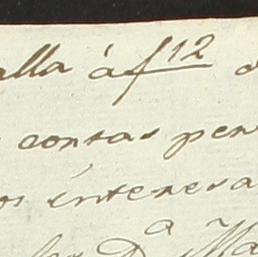 alla á f 12
contas per
os interesa
a
D. Ma